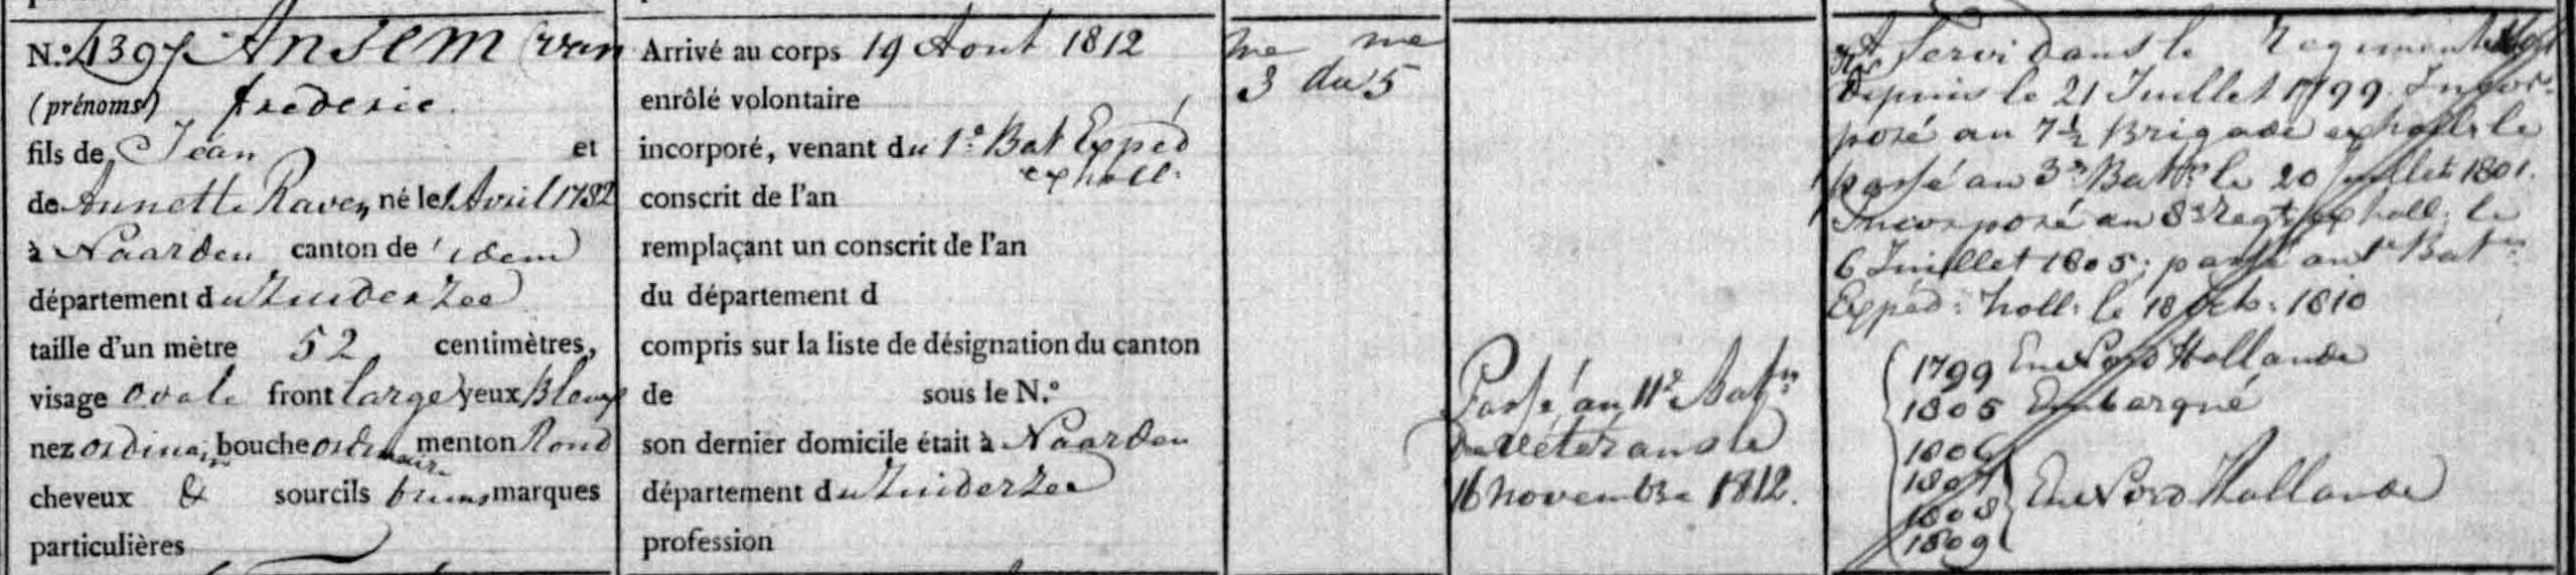 N.º 4397 Ansem (van
(prénoms) frederic.
fils de Jean et
de Annette Raven né le 1 Avril 1782
à Naarden canton de idem
département du Zuiderzee
taille d'un mètre 52 centimètres,
visage ovale front large yeux Bleux
nez ordinair bouche ordinaire menton Rond
cheveux & sourcils bruns marques
particulières
Arrivé au corps 19 Aout 1812
enrôlé volontaire
incorporé, venant du 1.º Bat Expéd
ex holl.
conscrit de l'an
remplaçant un conscrit de l'an
du département d
compris sur la liste de désignation du canton
de sous le N.º
son dernier domicile était à Naarden
département du Zuiderzee
profession
me me
3 du 5
Passé au 11e Batn
De vétérans le
16 novembre 1812.
A Servi dans le Regiment
Depuis le 21 Juillet 1799. Incor-
poré au 7 ½ Brigade ex holl: le
passé au 3e Batn le 20 Juillet 1801.
Incorporé au 8e Regt ex holl. le
6 Juillet 1805; passé au 1 Batn
Expéd: holl: le 18 Octo: 1810
1799 En Nord Hollande
1805 Embarqué
1806
1807
1808 En Nord Hollande
1809